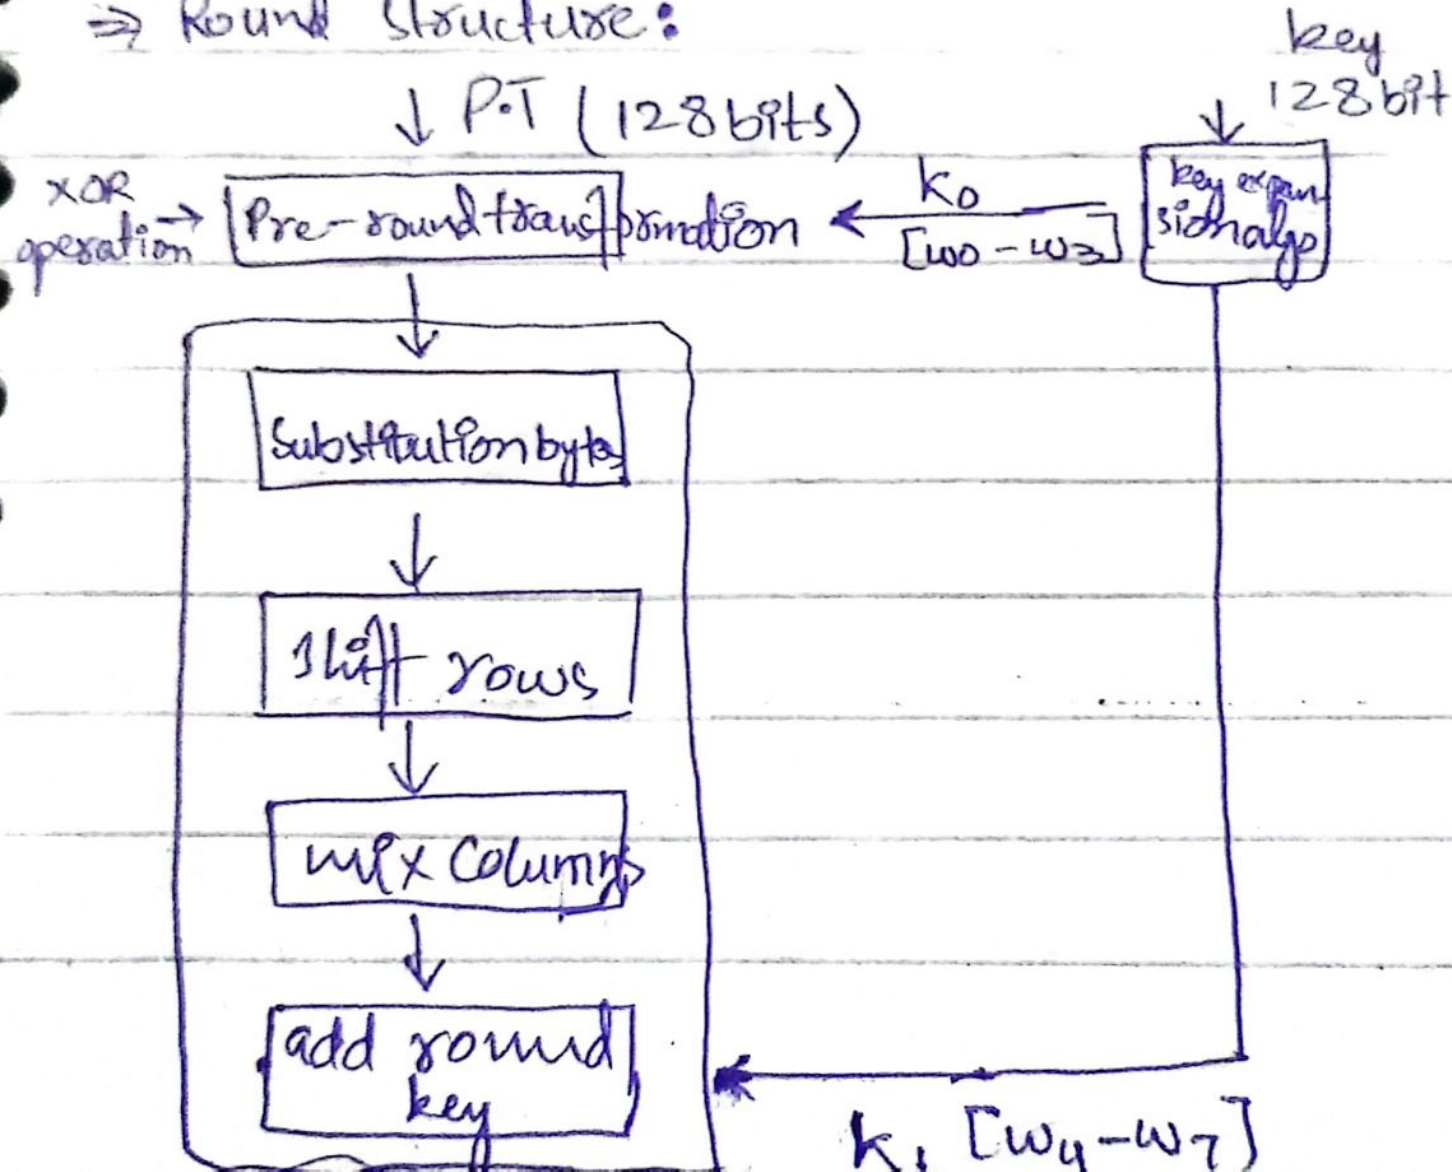 ⇒ Round Structure:
key
128bit
↓ P.T (128 bits)
XOR
operation →
Pre-round transformation
K0
[w0 - w3]
key expan
sion algo
Substitution bytes
Shift rows
mix Columns
add round
key
K1 [w4 - w7]